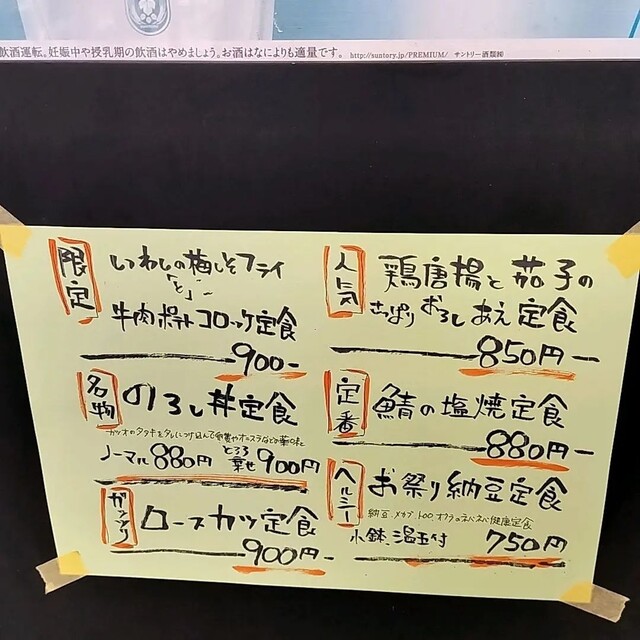 飲酒運転。妊娠中や授乳期の飲酒はやめましょう。お酒はなによりも適量です。 http://suntory.jp/PREMIUM/ サントリー酒類㈱
限定
いわしの梅しそフライ
「と」
牛肉ポテトコロッケ定食
900-
名物
のろし丼定食
ノーマル 880円 とろろ乗せ 900円
ガッツリ
ロースカツ定食
900円
人気
鶏唐揚と茄子の
さっぱりおろしあえ定食
850円
定番
鯖の塩焼定食
880円
ヘルシー
お祭り納豆定食
納豆、メカブ、トロロ、オクラのネバネバ健康定食
小鉢、温玉付 750円